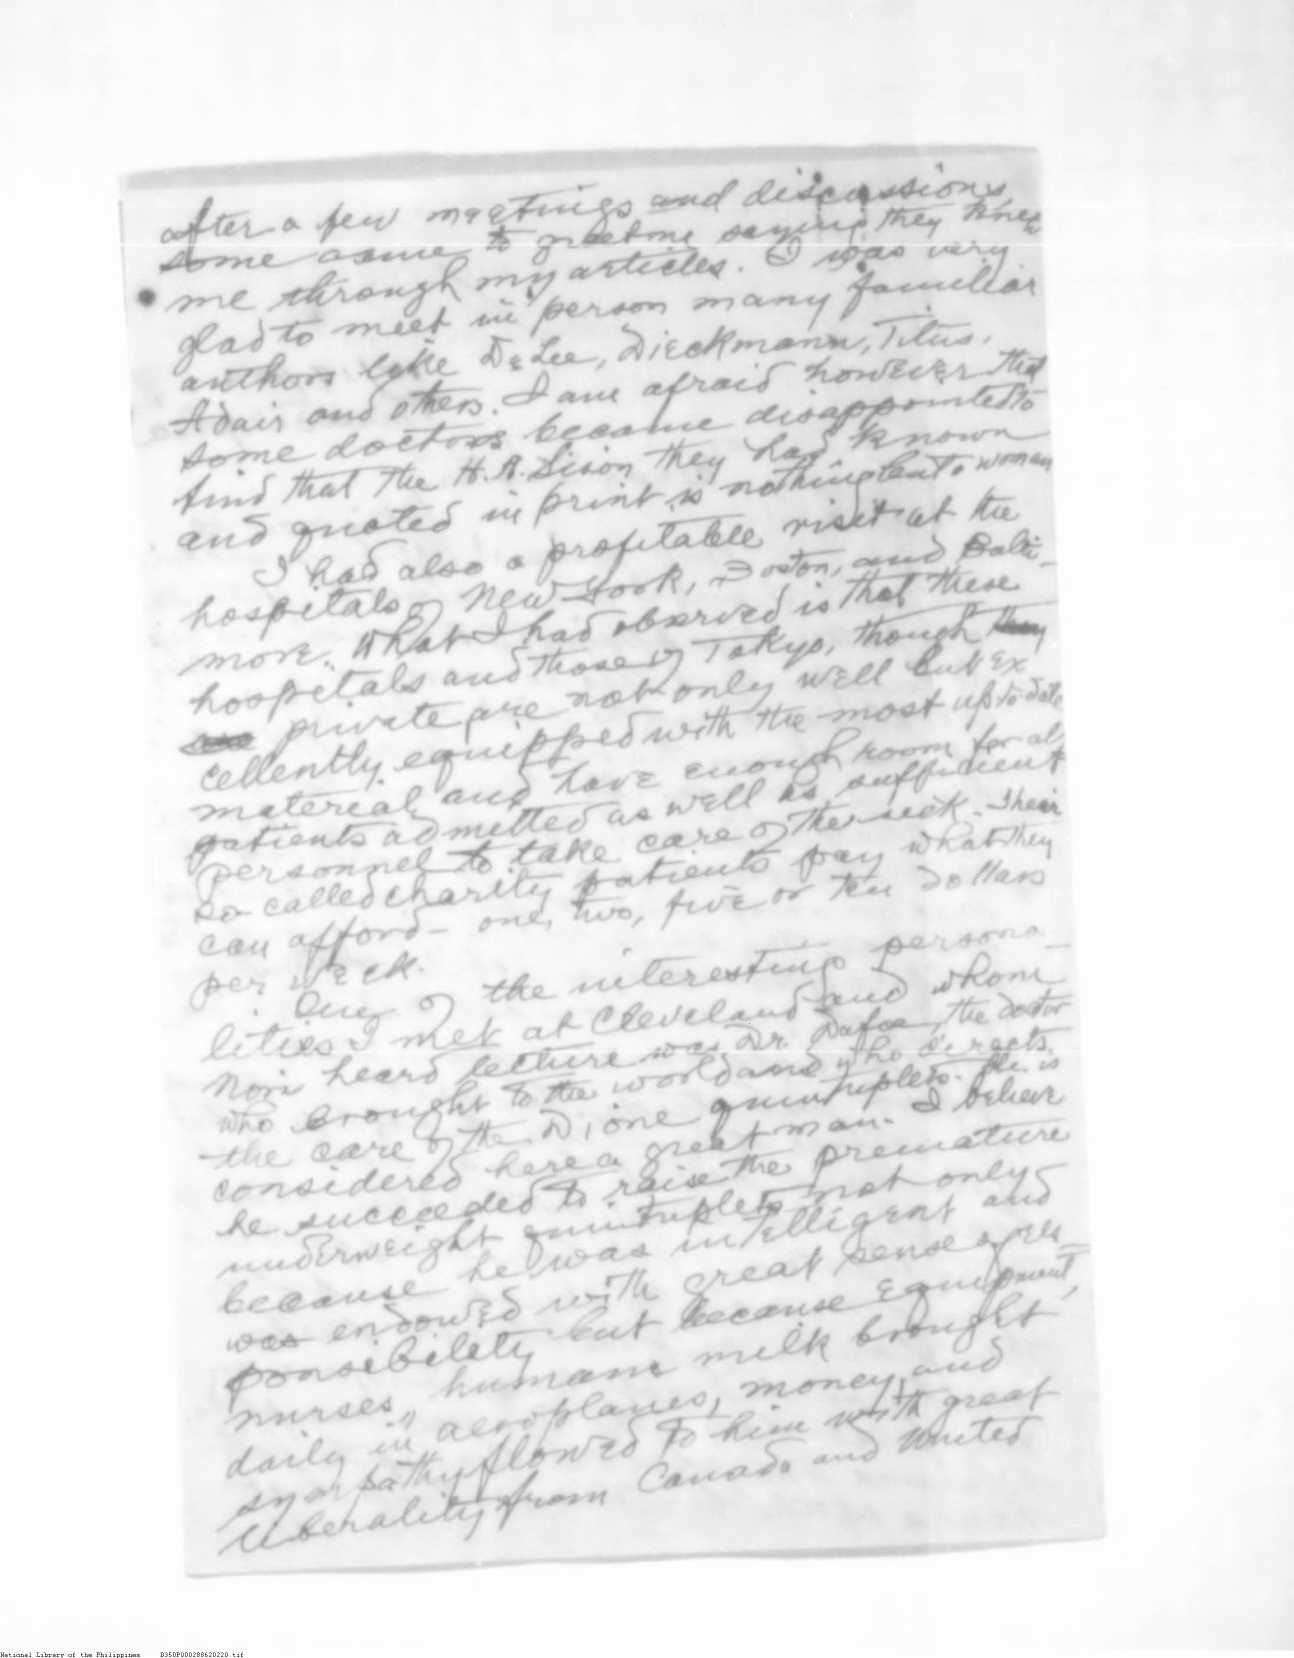 after a few meetings and discussions,
some came to greet me saying they knew
me through my articles. I was very
glad to meet in person many familiar
authors like DeLee, Dieckmann, Titus,
Adair and others. I am afraid however that
some doctors became disappointed to
find that the H. A. Sison they had known
and quoted in print is nothing but a woman
I had also a profitable visit at the
hospitals of New York, Boston, and Balti-
more. What I had observed is that these
hospitals and those of Tokyo, though they
private are not only well but ex
cellently equipped with the most up to date
material and have enough room for all
patients admitted as well as sufficient
personnel to take care of the sick. Their
so called charity patients pay what they
can afford - one, two, five or ten dollars
per week.
One of the interesting persona-
lities I met at Cleveland and whom
heard lecture was Dr. Dafoe, the doctor
who brought to the world and who directs
the care of the Dione quintuplets. He is
considered here a great man. I believe
he succeeded to raise the premature
underweight quintuplets not only
because he was intelligent and
was endowed with great sense of res-
ponsibility but because equipment,
nurses, human milk brought
daily in aeroplanes, money, and
sympathy flowed to him with great
liberality from Canada and United
National Library of the Philippines D350P000288620220.tif